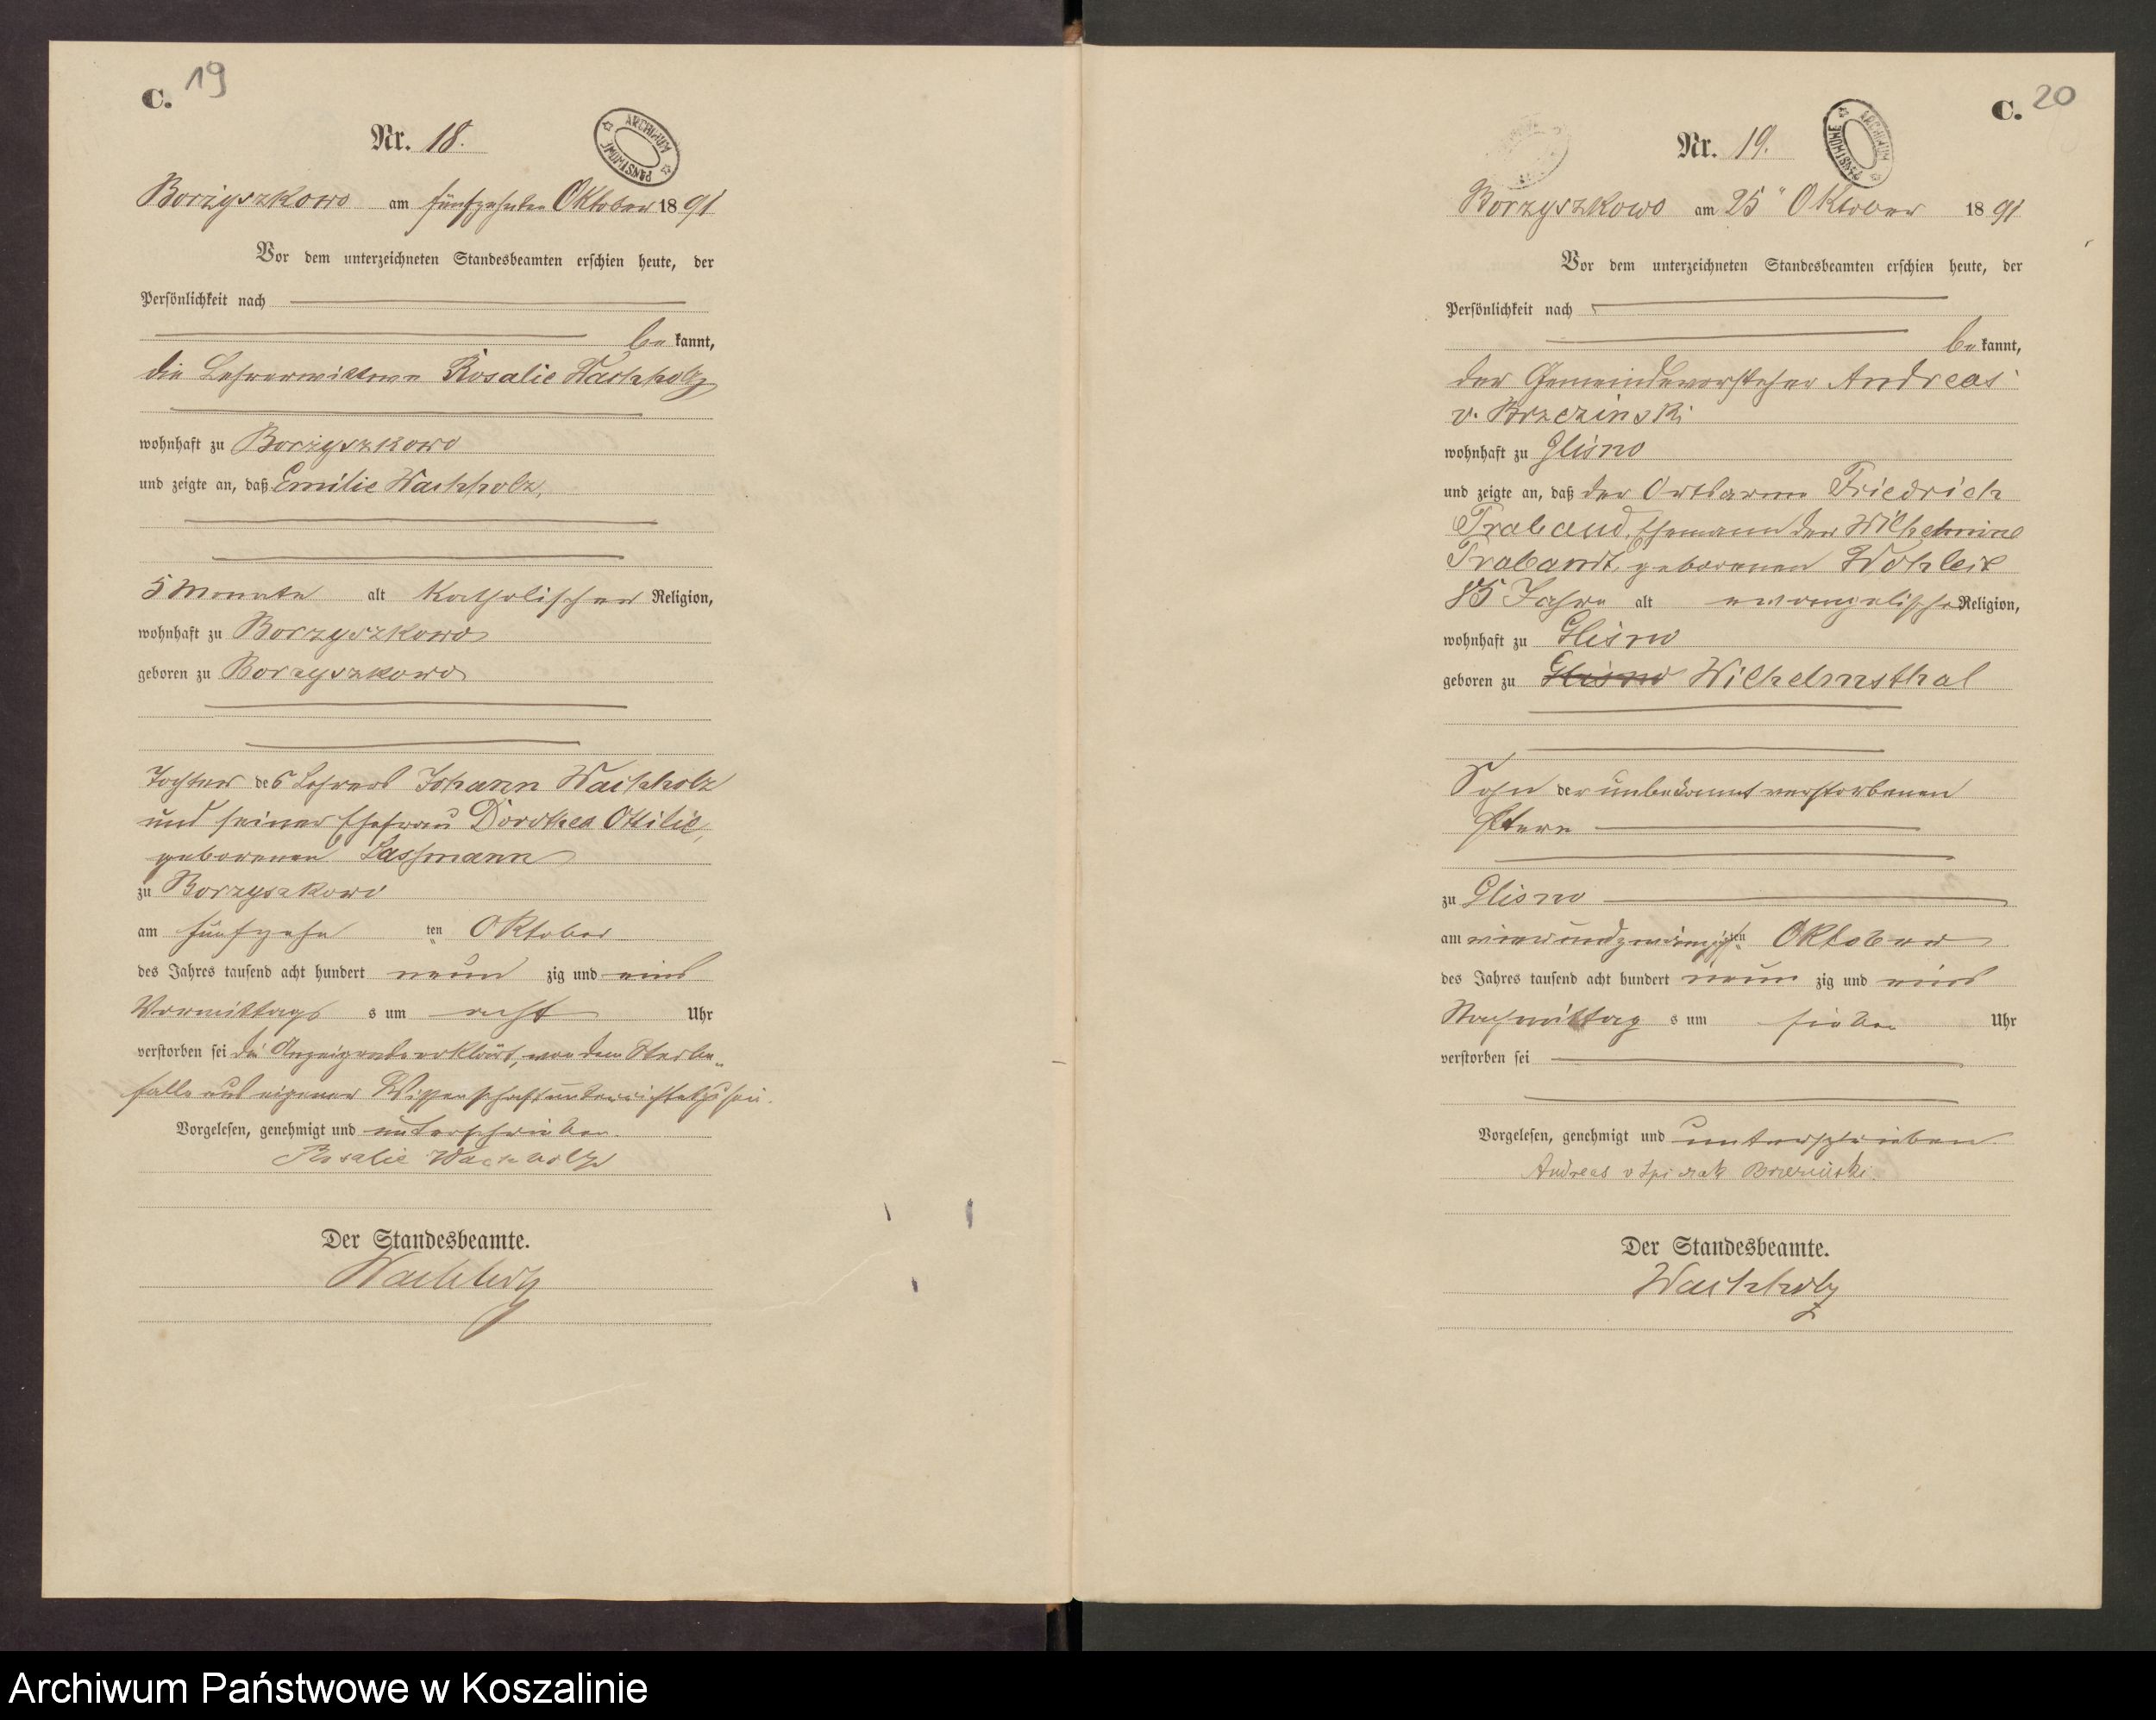 C. 19
ARCHIWUM PAŃSTWOWE
Nr. 18.
Borzyszkowo am fünfzehnten Oktober 1891
Vor dem unterzeichneten Standesbeamten erschien heute, der
Persönlichkeit nach
be kannt,
die Lehrerwittwe Rosalie Wachholz
wohnhaft zu Borzyszkowo
und zeigte an, daß Emilie Wachholz,
5 Monate alt katholischer Religion,
wohnhaft zu Borzyszkowo
geboren zu Borzyszkowo
Tochter des Lehrers Johann Wachholz
und seiner Ehefrau Dorothea Ottilie,
geborenen Lassmann
zu Borzyszkowo
am fünfzehn ten Oktober
des Jahres tausend acht hundert neun zig und eins
Vormittags um acht Uhr
verstorben sei die Anzeigende erklärt, von dem Sterbe-
falle aus eigener Wissenschaft unterrichtet zu sein.
Vorgelesen, genehmigt und unterschrieben.
Rosalie Wachholz
Der Standesbeamte.
Wachholz
C. 20
ARCHIWUM PAŃSTWOWE
Nr. 19.
Borzyszkowo am 25" Oktober 1891
Vor dem unterzeichneten Standesbeamten erschien heute, der
Persönlichkeit nach
be kannt,
der Gemeindevorsteher Andreas
v. Brzezinski
wohnhaft zu Glisno
und zeigte an, daß der Ortsarme Friedrich
Traband, Ehemann der Wilhelmine
Trabandt, geborenen
85 Jahre alt evangelische Religion,
wohnhaft zu Glisno
geboren zu Glisno Wilhelmsthal
Sohn der unbekannt verstorbenen
Eltern
zu Glisno
am vierundzwanzigsten Oktober
des Jahres tausend acht hundert neun zig und eins
Nachmittags um sieben Uhr
verstorben sei
Vorgelesen, genehmigt und unterschrieben
Andreas v Spiczak Brzezinski
Der Standesbeamte.
Wachholz
Archiwum Państwowe w Koszalinie